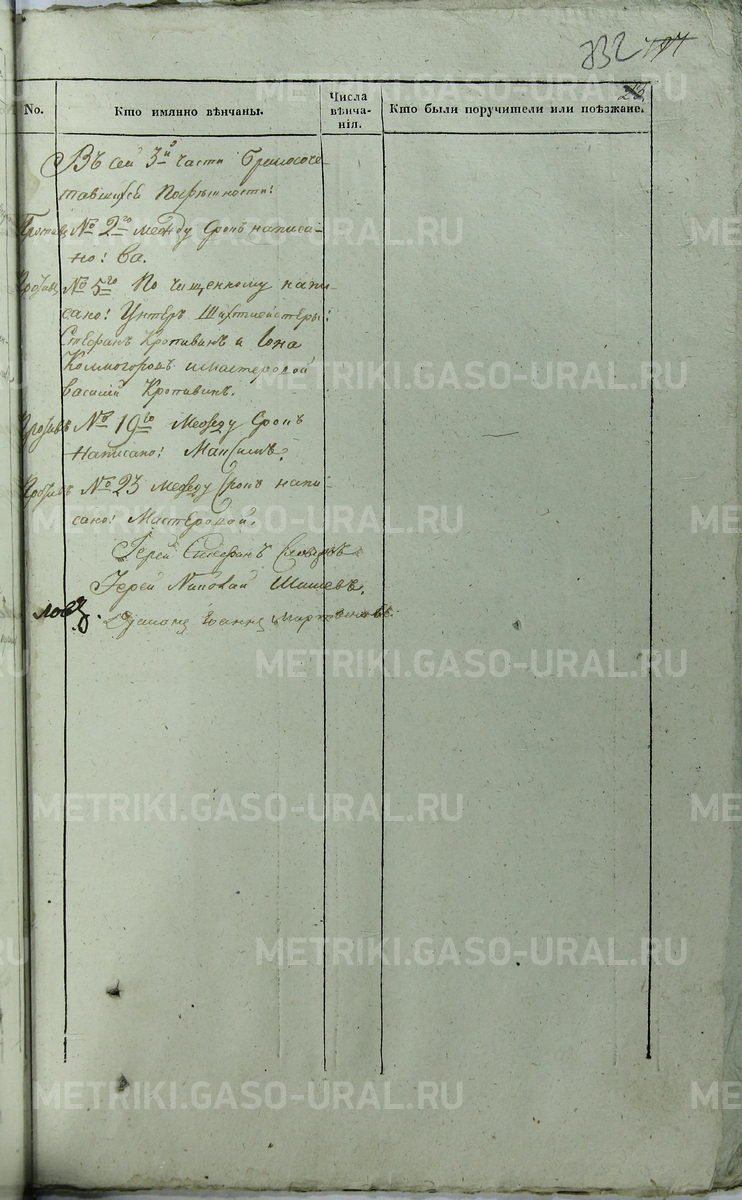 732
No.
Кто имянно вѣнчаны.
Числа
вѣнча-
нія.
Кто были поручители или поѣзжаие.
Въ сей 3й части Бракосоче-
тавшихся погрѣшности:
Противъ № 2го между Срокъ написа-
но: ва.
Противъ № 5го По чищенному напи-
сано: Унтеръ Шихтмейстеры:
Стефанъ Кротивинъ и Іона
Колмогоровъ и мастеровой
Василій Кротивинъ.
Противъ № 19го Между Срокъ
написано: Максимъ.
Противъ № 23 Между Срокъ напи-
сано: Мастеровой.
Іерей Стефанъ
Іерей Николай Шишевъ.
Іоаннъ
METRIKI.GASO-URAL.RU